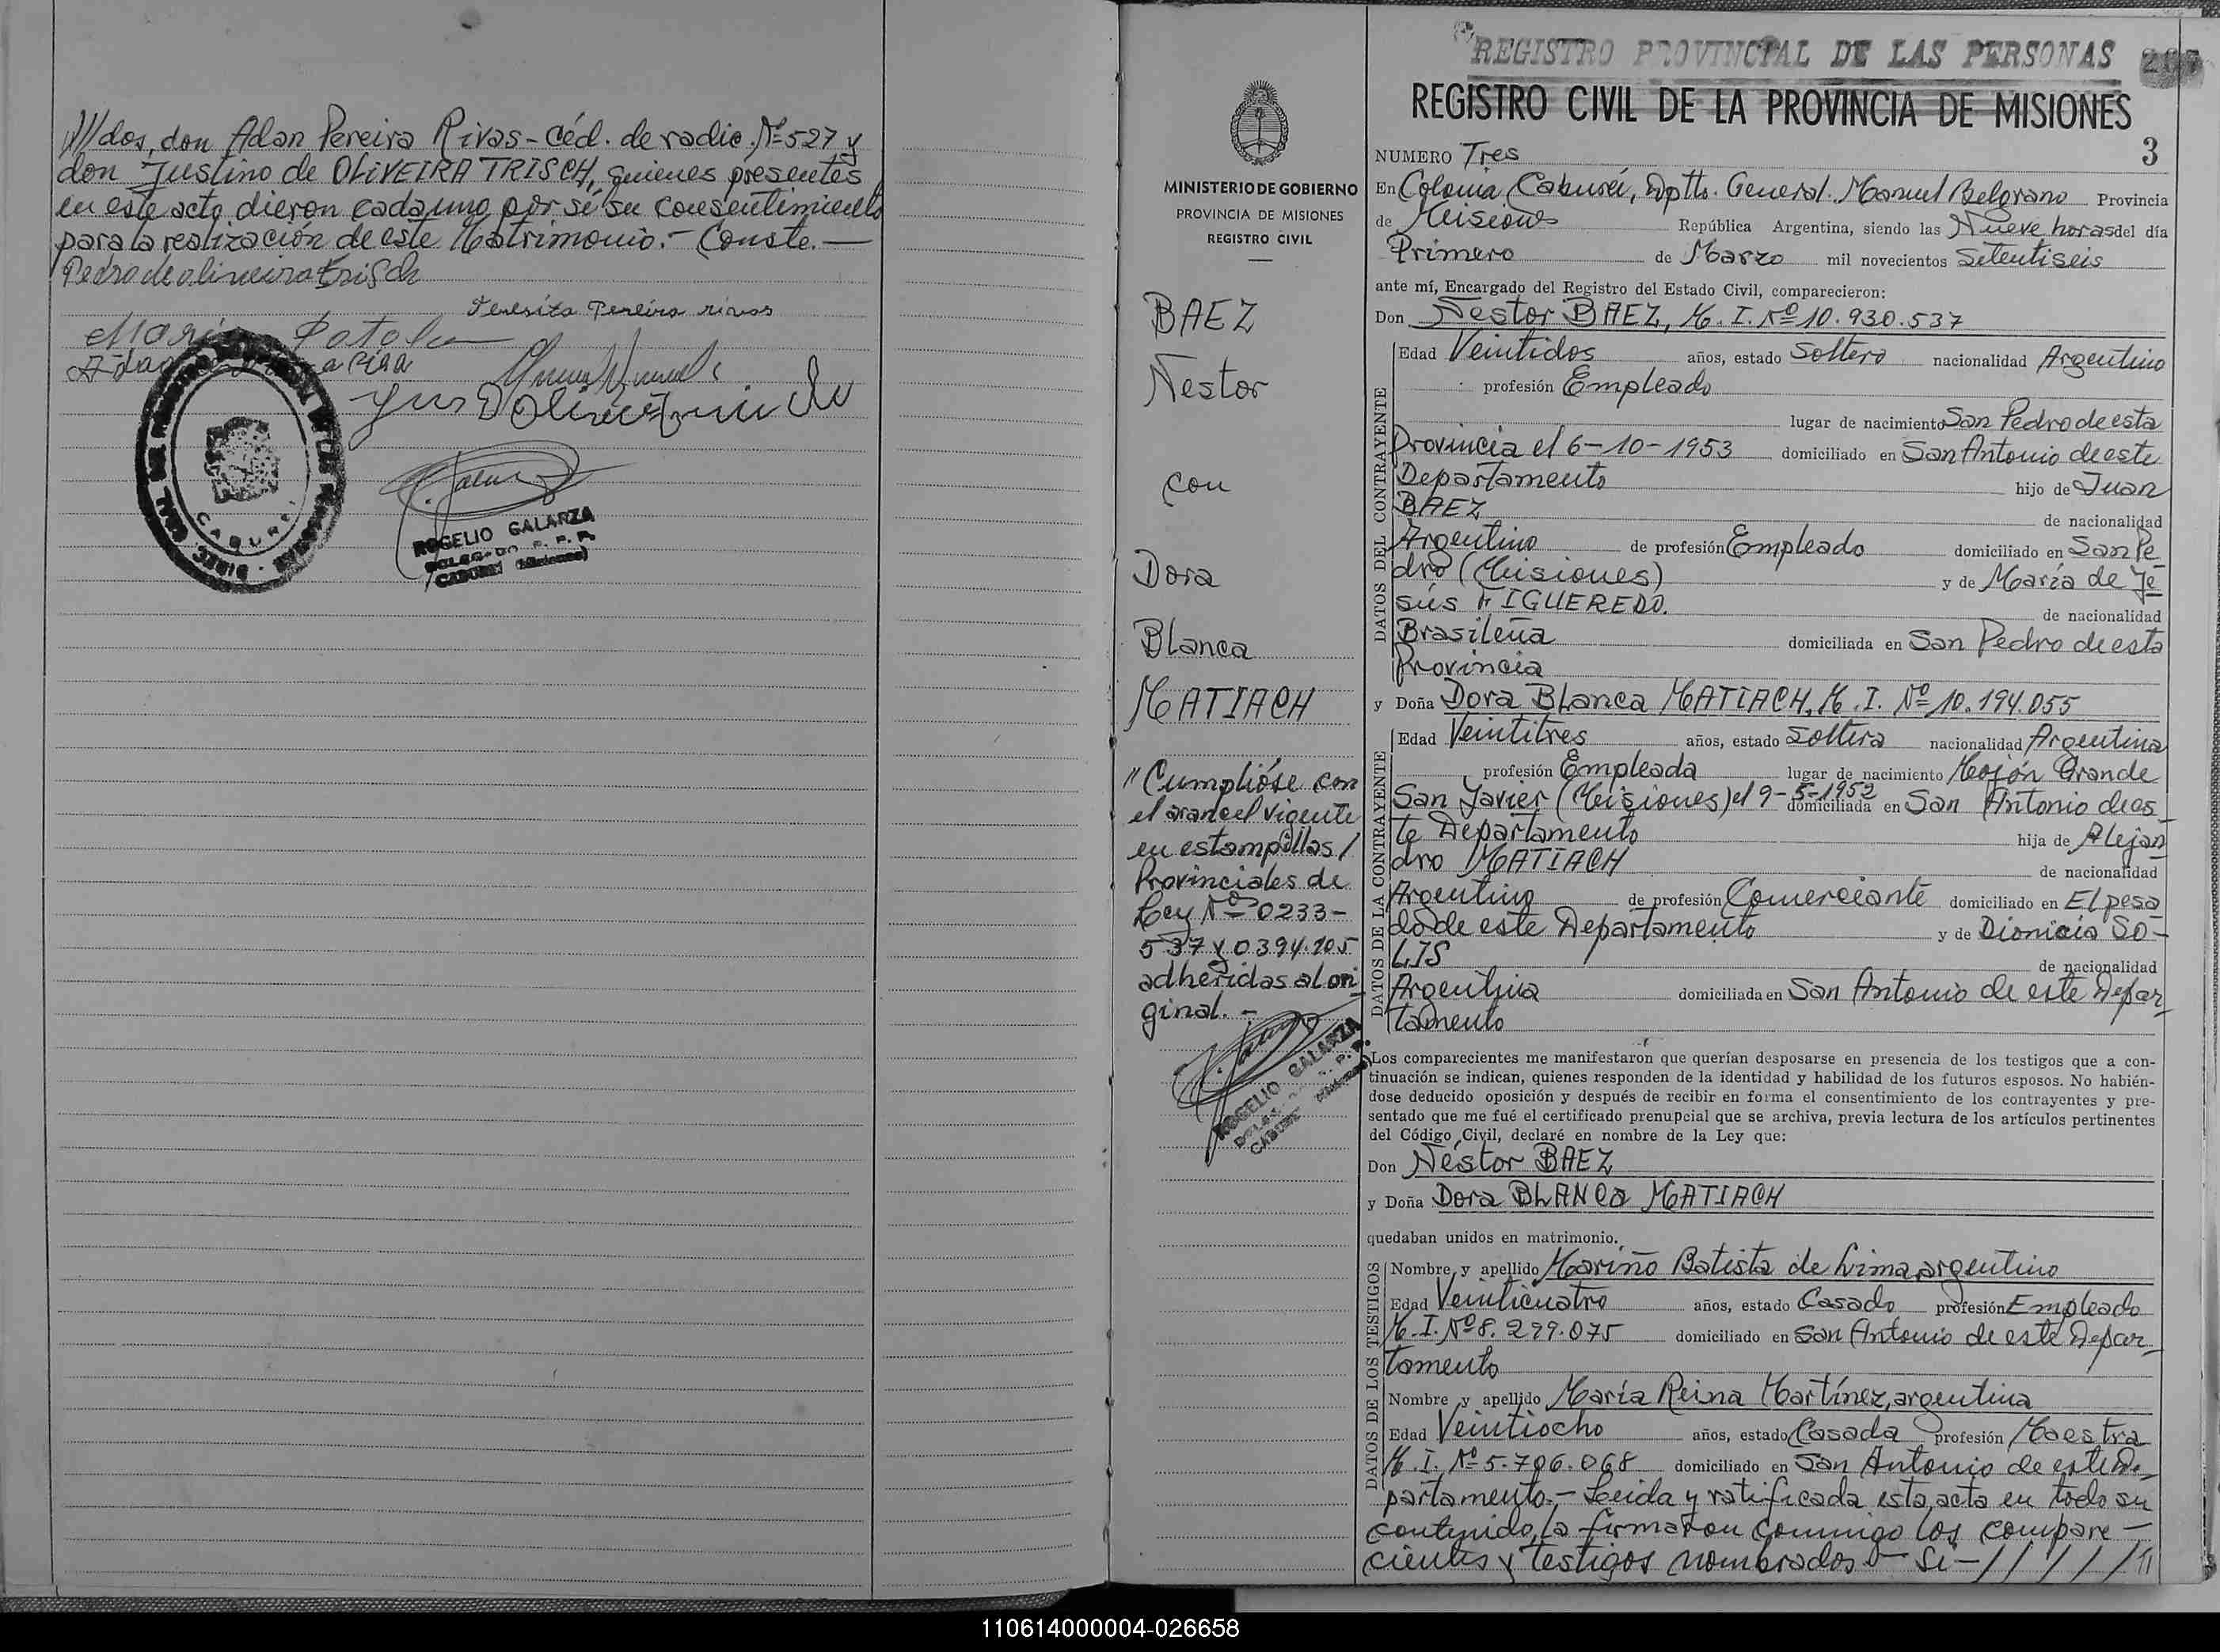 ///dos, don Adan Pereira Rivas - Céd. de radic. Nº 527 y
don Justino de OLIVEIRA TRISCH, quienes presentes
en este acto dieron cada uno por sí su consentimiento
para la realización de este Matrimonio.- Conste.-
Pedro de oliveira trisch
Teresita Pereira rivas
ROGELIO GALARZA
CABURE (Misiones)
REGISTRO PROVINCIAL DE LAS PERSONAS
REGISTRO CIVIL DE LA PROVINCIA DE MISIONES
MINISTERIO DE GOBIERNO
PROVINCIA DE MISIONES
REGISTRO CIVIL
BAEZ
Nestor
con
Dora
Blanca
MATIACH
"Cumplióse con
el arancel vigente
en estampillas/
Provinciales de
Ley Nº 0233-
537 y 0394.105
adheridas al ori
ginal.-
ROGELIO GALARZA
NUMERO Tres 3
En Colonia Caburéi, Dptto. General Manuel Belgrano Provincia
de Misiones República Argentina, siendo las Nueve horas del día
Primero de Marzo mil novecientos Setentiseis
ante mí, Encargado del Registro del Estado Civil, comparecieron:
Don Nestor BAEZ, M. I. Nº 10.930.537
DATOS DEL CONTRAYENTE
Edad Veintidos años, estado Soltero nacionalidad Argentino
profesión Empleado
lugar de nacimiento San Pedro de esta
Provincia el 6-10-1953 domiciliado en San Antonio de este
Departamento hijo de Juan
BAEZ de nacionalidad
Argentino de profesión Empleado domiciliado en San Pe
dro (Misiones) y de María de Je
sús FIGUEREDO. de nacionalidad
Brasileña domiciliada en San Pedro de esta
Provincia
y Doña Dora Blanca MATIACH, M. I. Nº 10.194.055
DATOS DE LA CONTRAYENTE
Edad Veintitres años, estado Soltera nacionalidad Argentina
profesión Empleada lugar de nacimiento Mojón Grande
San Javier (Misiones) el 9-5-1952 domiciliada en San Antonio de es
te Departamento hija de Alejan
dro MATIACH de nacionalidad
Argentino de profesión Comerciante domiciliado en El pesa
do de este Departamento y de Dionicia SO-
LIS de nacionalidad
Argentina domiciliada en San Antonio de este Depar
tamento
Los comparecientes me manifestaron que querían desposarse en presencia de los testigos que a con-
tinuación se indican, quienes responden de la identidad y habilidad de los futuros esposos. No habién-
dose deducido oposición y después de recibir en forma el consentimiento de los contrayentes y pre-
sentado que me fué el certificado prenupcial que se archiva, previa lectura de los artículos pertinentes
del Código Civil, declaré en nombre de la Ley que:
Don Néstor BAEZ
y Doña Dora BLANCA MATIACH
quedaban unidos en matrimonio.
DATOS DE LOS TESTIGOS
Nombre y apellido Mariño Batista de Lima, argentino
Edad Veinticuatro años, estado Casado profesión Empleado
M. I. Nº 8.299.075 domiciliado en San Antonio de este Depar
tamento
Nombre y apellido María Reina Martínez, argentina
Edad Veintiocho años, estado Casada profesión Maestra
M. I. Nº 5.706.068 domiciliado en San Antonio de este De-
partamento.- Leida y ratificada esta acta en todo su
contenido, la firmaron conmigo los compare-
cientes y testigos nombrados.- Si-/////
110614000004-026658